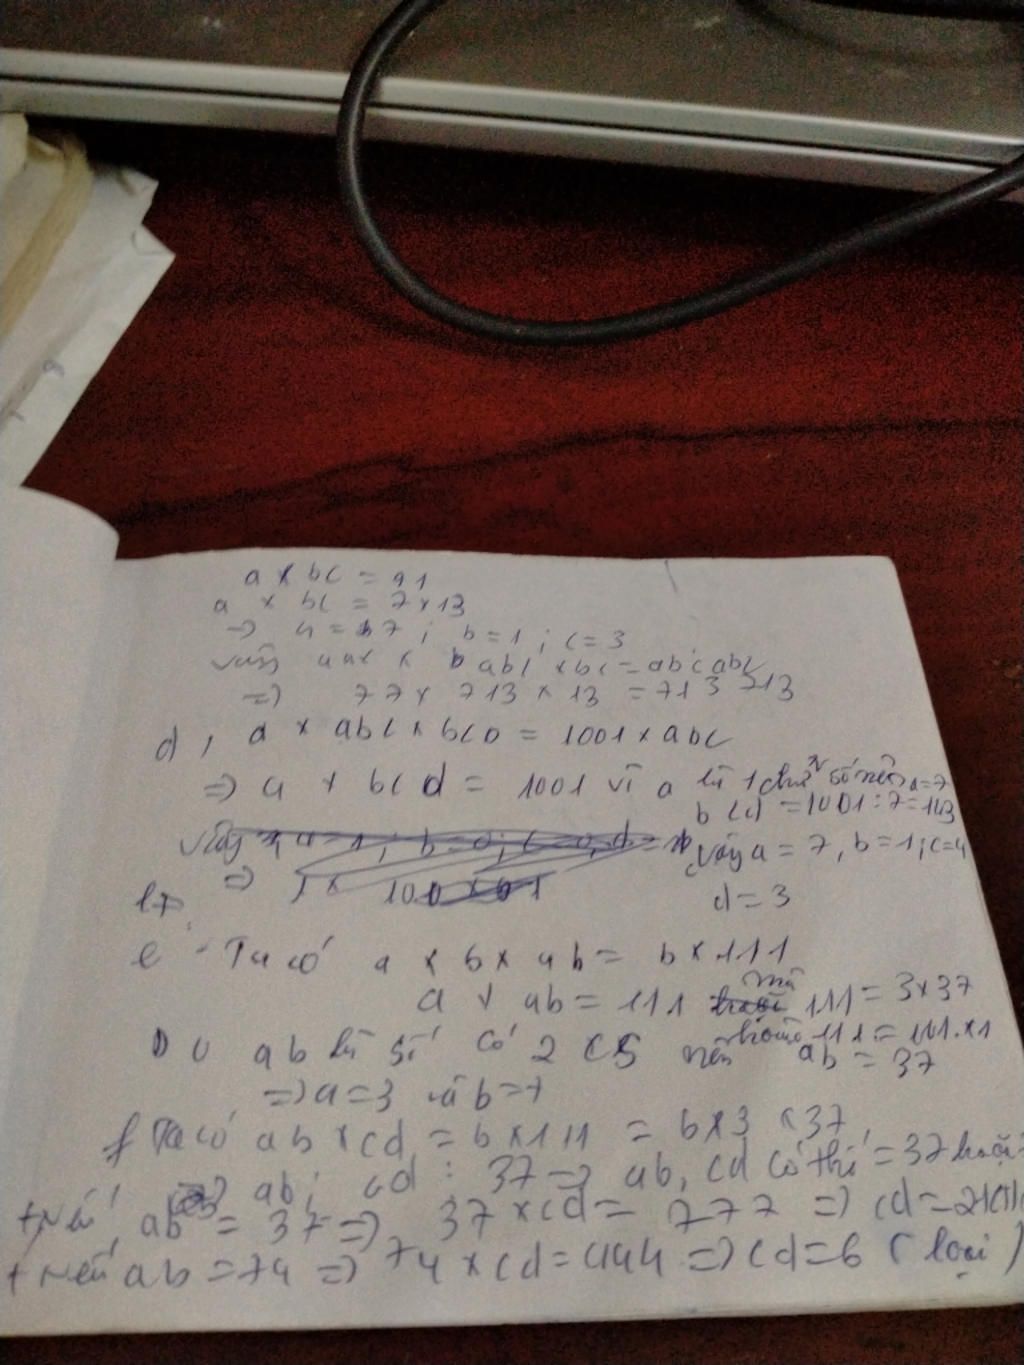 a x bc = 91
a x bc = 7 x 13
=> a = 7 ; b = 1 ; c = 3
Vậy aa x abc x bc = abc abc
=> 77 x 713 x 13 = 713 713
d, a x abc x bcd = 1001 x abc
=> a x bcd = 1001 vì a là 1 chữ số nên a = 7
bcd = 1001 : 7 = 143
Vậy a = 7, b = 1, c = 4
d = 3
e Ta có a x b x ab = b x 111
a x ab = 111 mà 111 = 3 x 37
hoặc 111 = 111 x 1
Do ab là số có 2 CS nên ab = 37
=> a = 3 và b = 7
f Ta có ab x cd = b x 111 = b x 3 x 37
=> ab ; cd : 37 => ab, cd có thể = 37 hoặc
+ Nếu ab = 37 => 37 x cd = 777 => cd = 21
+ Nếu ab = 74 => 74 x cd = 444 => cd = 6 ( loại )